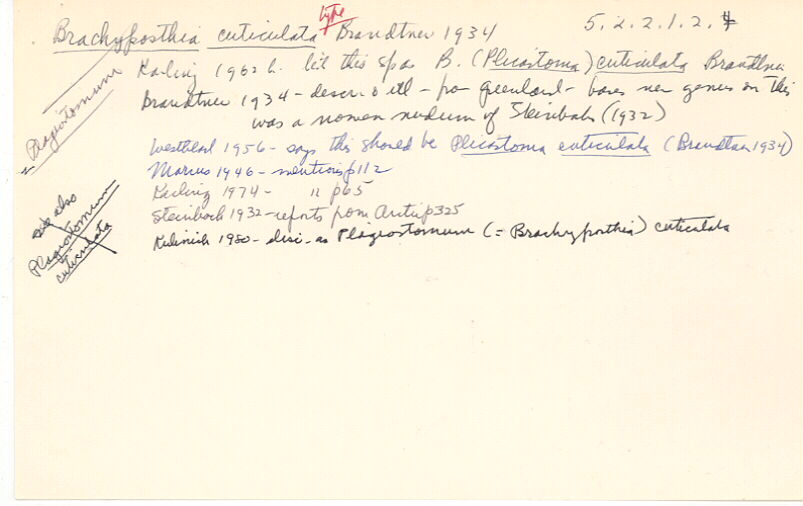 type
Brachyposthia cuticulata Brandtner 1934 5.2.2.1.2.4
Karling 1962 b. lists this sp as B. (Plicastoma) cuticulata Brandtner
Brandtner 1934 - descr. & ill - from Greenland - bases new genus on this
was a nomen nudum of Steinbock (1932)
Westblad 1956 - says this should be Plicastoma cuticulata (Brandtner 1934)
Marcus 1946 - mentions p 112
Karling 1974 - " p 65
Steinbock 1932 - reports from Arctic p 325
Kulinich 1980 - disc. as Plagiostomum (= Brachyposthia) cuticulata
Plagiostomum
see also
Plagiostomum
cuticulata